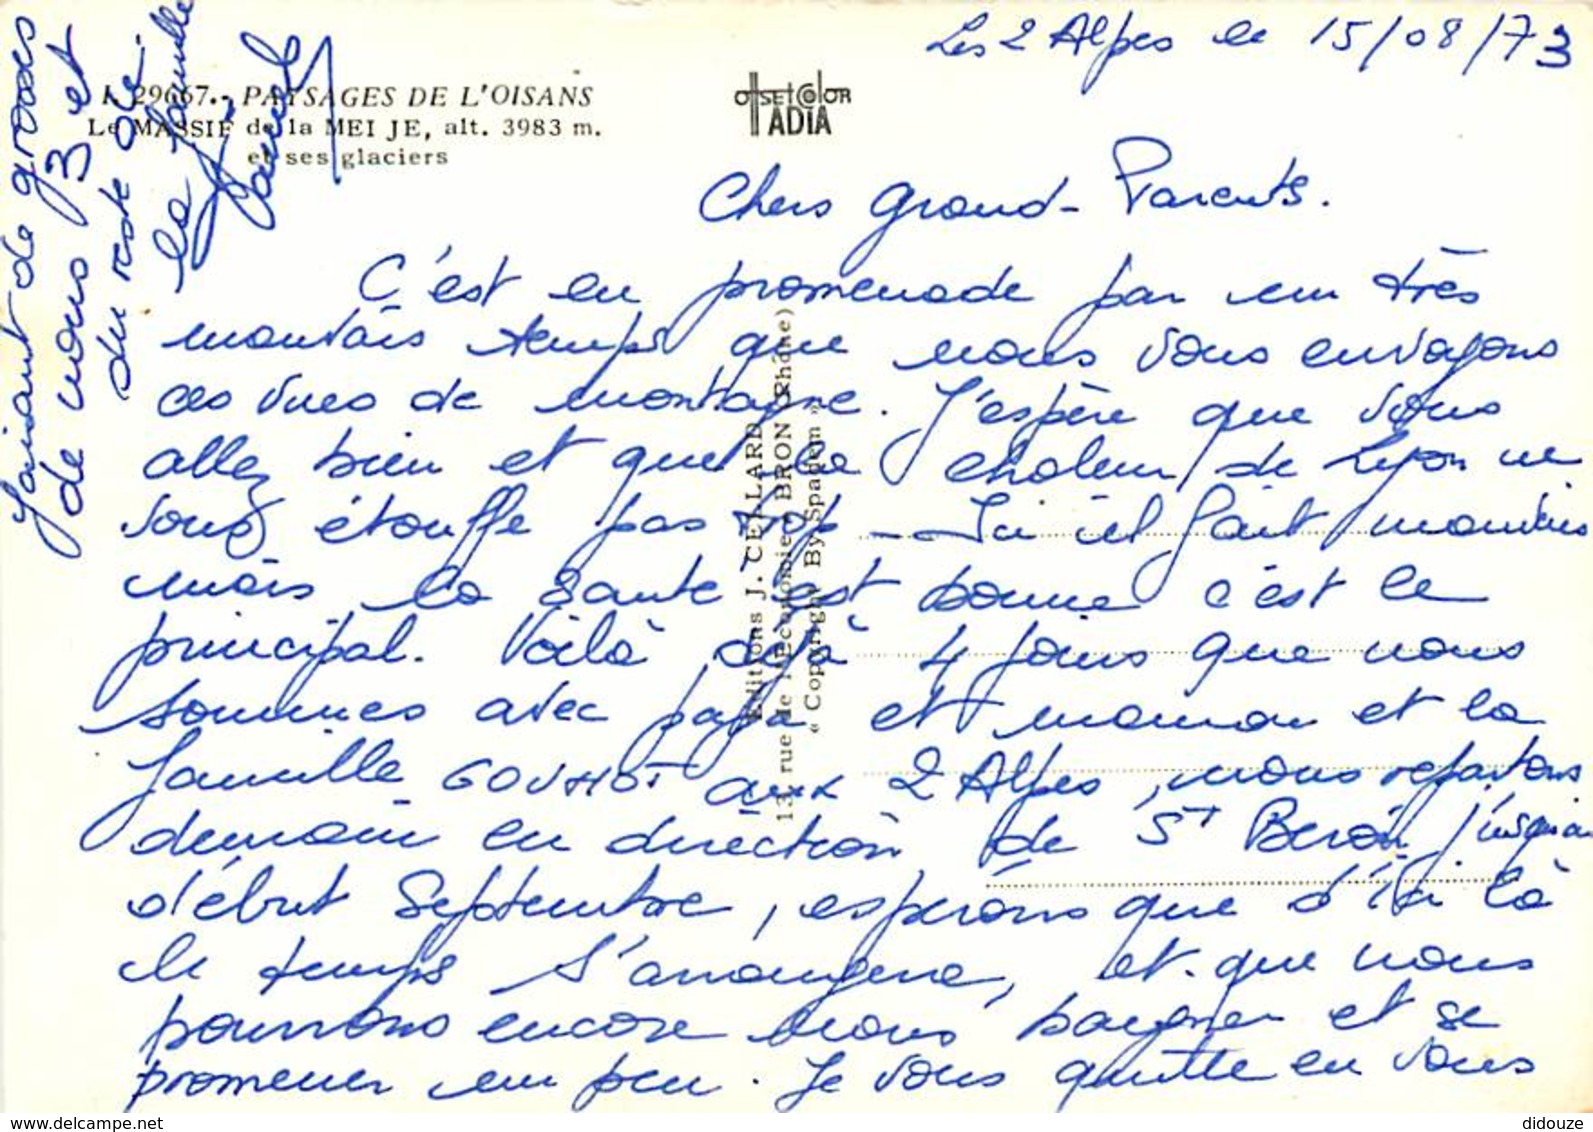 Les 2 Alpes le 15/08/73
I 29667. - PAYSAGES DE L'OISANS
Le MASSIF de la MEIJE, alt. 3983 m.
et ses glaciers
OffSEt COlOR
IADIA
Editions J. CELLARD
131 rue de l'Economie BRON (Rhône)
« Copyright By Spadem »
Chers grand-Parents.
C'est en promenade par un très
mauvais temps que nous vous envoyons
ces vues de montagne. J'espère que vous
allez bien et que la chaleur de Lyon ne
vous étouffe pas trop - Ici il fait mauvais
mais la santé est bonne c'est le
principal. Voilà déjà 4 jours que nous
sommes avec papa et maman et la
famille aux 2 Alpes, nous repartons
demain en direction de St Beron jusqu'au
début Septembre, espérons que d'ici là
le temps s'arrangera, et que nous
pourrons encore nous baigner et se
promener un peu. Je vous quitte en vous
faisant de grosses
de nous 3 et
du reste de
la famille
didouze
www.delcampe.net